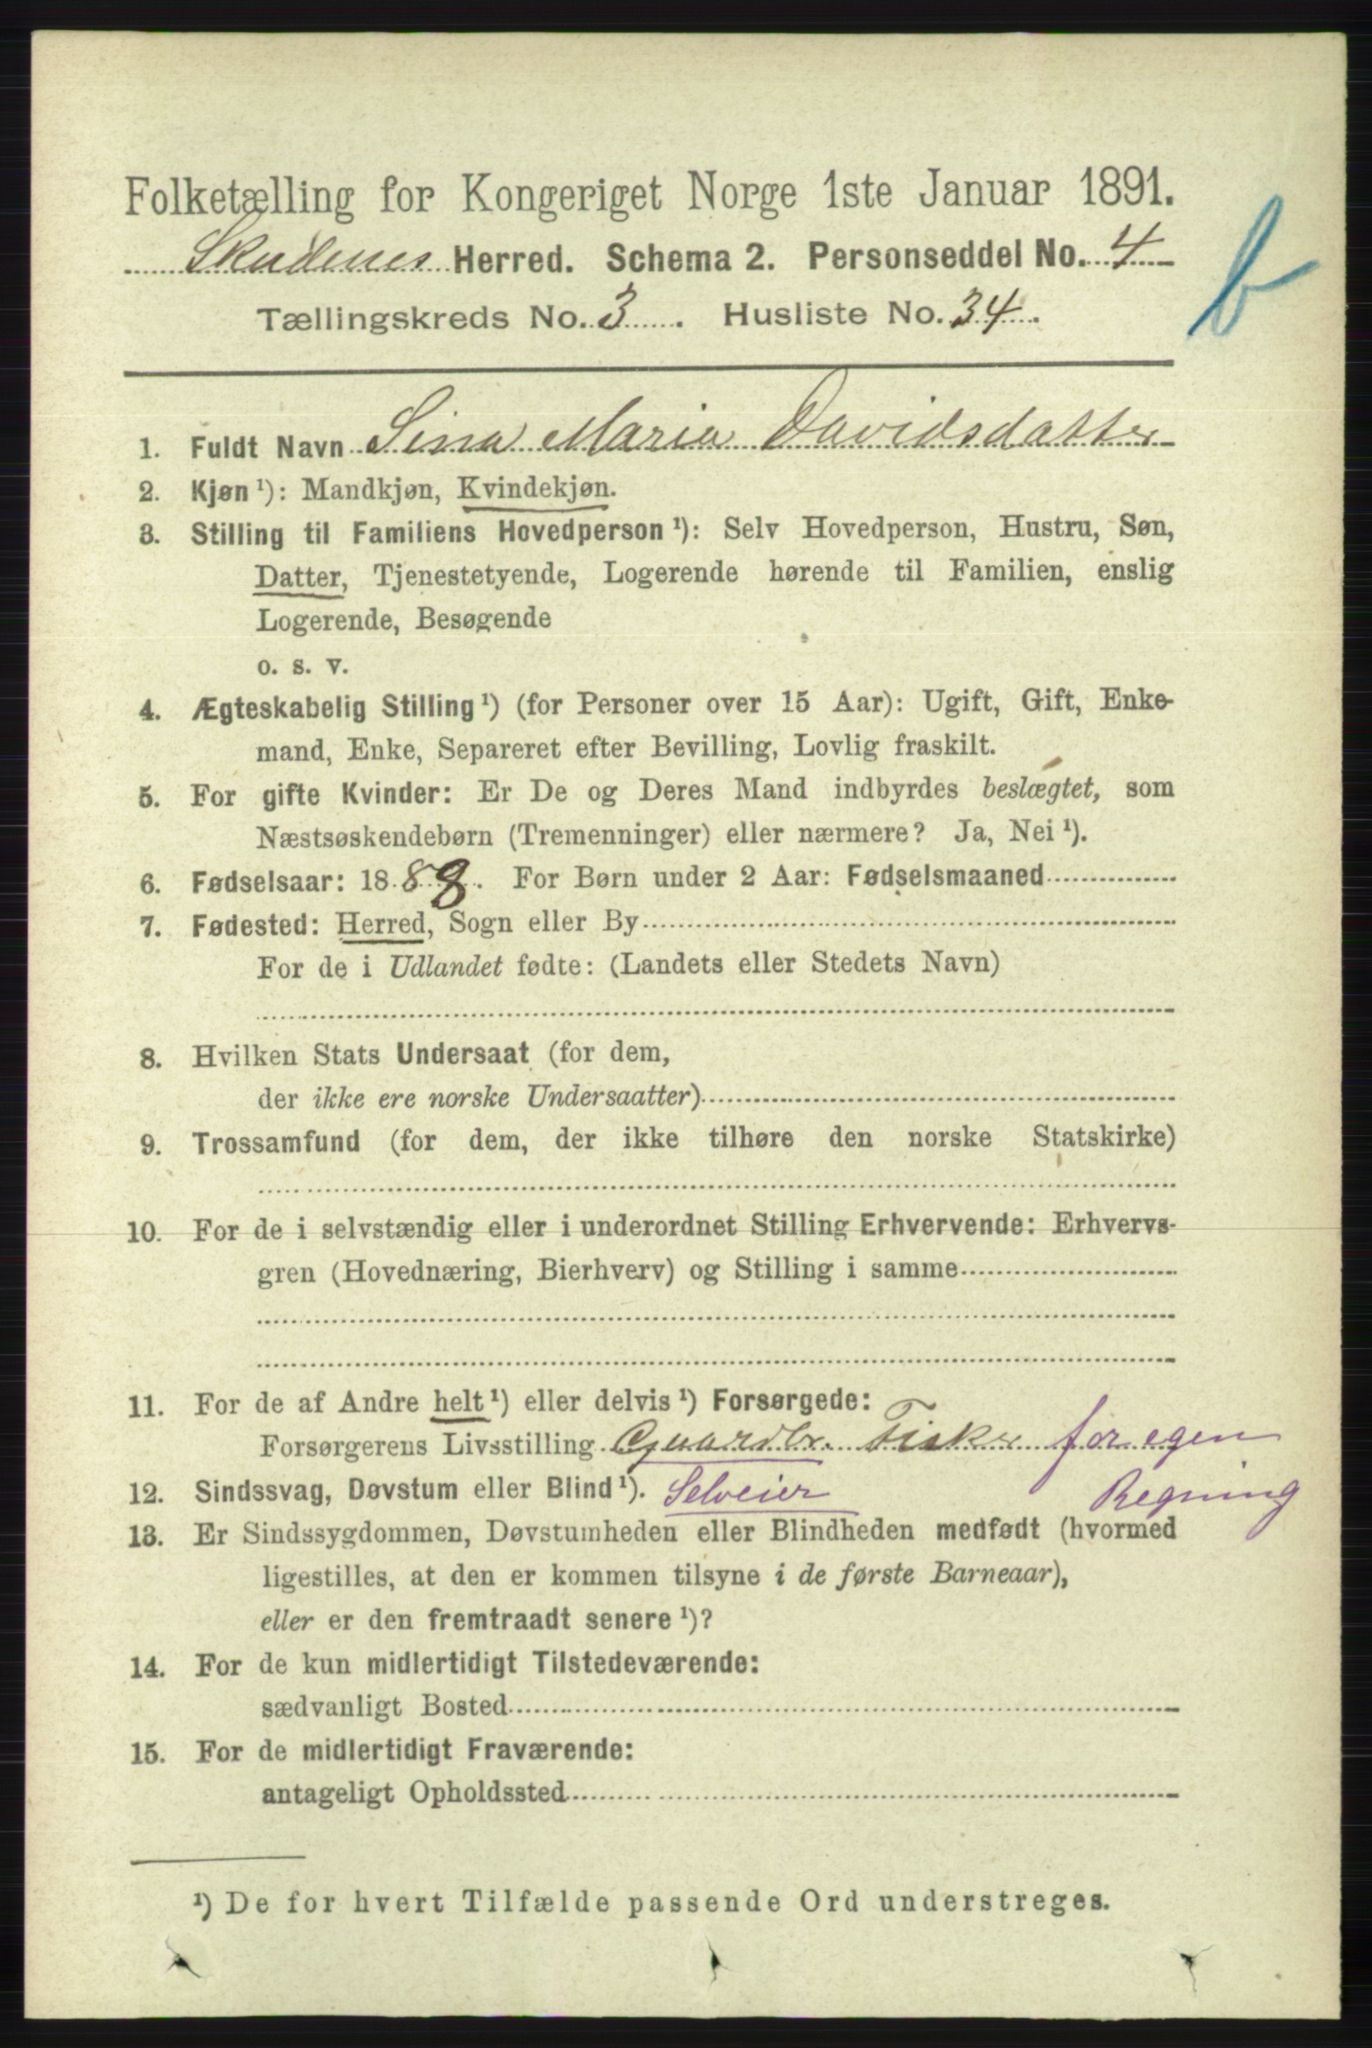 Folketælling for Kongeriget Norge 1ste Januar 1891.
Skudenes Herred. Schema 2. Personseddel No. 4
Tællingskreds No. 3. Husliste No. 34.
b
1. Fuldt Navn Sina Maria Davidsdatter
2. Kjøn ¹): Mandkjøn, Kvindekjøn.
3. Stilling til Familiens Hovedperson ¹): Selv Hovedperson, Hustru, Søn,
Datter, Tjenestetyende, Logerende hørende til Familien, enslig
Logerende, Besøgende
o. s. v.
4. Ægteskabelig Stilling ¹) (for Personer over 15 Aar): Ugift, Gift, Enke-
mand, Enke, Separeret efter Bevilling, Lovlig fraskilt.
5. For gifte Kvinder: Er De og Deres Mand indbyrdes beslægtet, som
Næstsøskendebørn (Tremenninger) eller nærmere? Ja, Nei ¹).
6. Fødselsaar: 1888. For Børn under 2 Aar: Fødselsmaaned
7. Fødested: Herred, Sogn eller By
For de i Udlandet fødte: (Landets eller Stedets Navn)
8. Hvilken Stats Undersaat (for dem,
der ikke ere norske Undersaatter)
9. Trossamfund (for dem, der ikke tilhøre den norske Statskirke)
10. For de i selvstændig eller i underordnet Stilling Erhvervende: Erhvervs-
gren (Hovednæring, Bierhverv) og Stilling i samme
11. For de af Andre helt ¹) eller delvis ¹) Forsørgede:
Forsørgerens Livsstilling Gaardbr. Fisker for egen
12. Sindssvag, Døvstum eller Blind ¹). Selveier Regning
13. Er Sindssygdommen, Døvstumheden eller Blindheden medfødt (hvormed
ligestilles, at den er kommen tilsyne i de første Barneaar),
eller er den fremtraadt senere ¹)?
14. For de kun midlertidigt Tilstedeværende:
sædvanligt Bosted
15. For de midlertidigt Fraværende:
antageligt Opholdssted
¹) De for hvert Tilfælde passende Ord understreges.